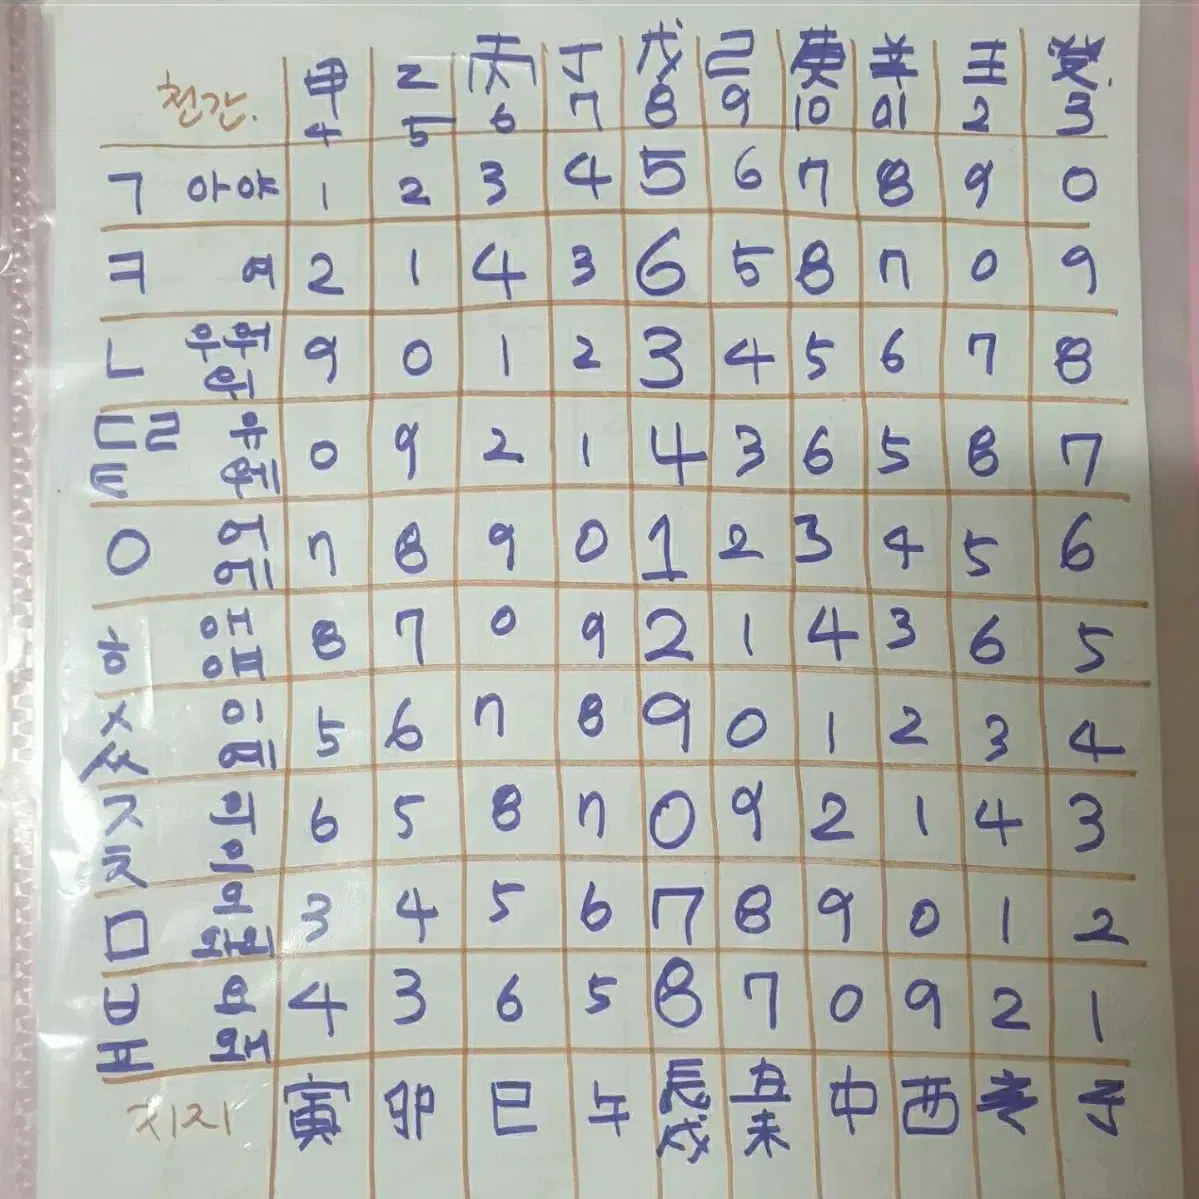 천간. 甲 乙 丙 丁 戊 己 庚 辛 壬 癸.
4 5 6 7 8 9 10 01 2 3
ㄱ 아야 1 2 3 4 5 6 7 8 9 0
ㅋ 여 2 1 4 3 6 5 8 7 0 9
ㄴ 우워 위 9 0 1 2 3 4 5 6 7 8
ㄷㄹ ㅌ 유 웨 0 9 2 1 4 3 6 5 8 7
ㅇ 어 에 7 8 9 0 1 2 3 4 5 6
ㅎ 애 얘 8 7 0 9 2 1 4 3 6 5
ㅅ ㅆ 이 예 5 6 7 8 9 0 1 2 3 4
ㅈ ㅊ 의 으 6 5 8 7 0 9 2 1 4 3
ㅁ 오 와외 3 4 5 6 7 8 9 0 1 2
ㅂ ㅍ 요 왜 4 3 6 5 8 7 0 9 2 1
지지 寅 卯 巳 午 辰 丑 申 酉 亥 子
戌 未